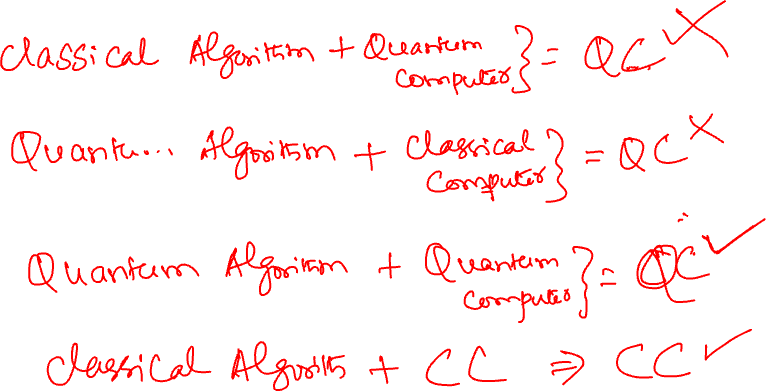 Classical Algorithm + Quantum Computer } = QC ✗
Quantu... Algorithm + Classical Computer } = QC ✗
Quantum Algorithm + Quantum Computer } = QC ✓
Classical Algorith + CC ⇒ CC ✓